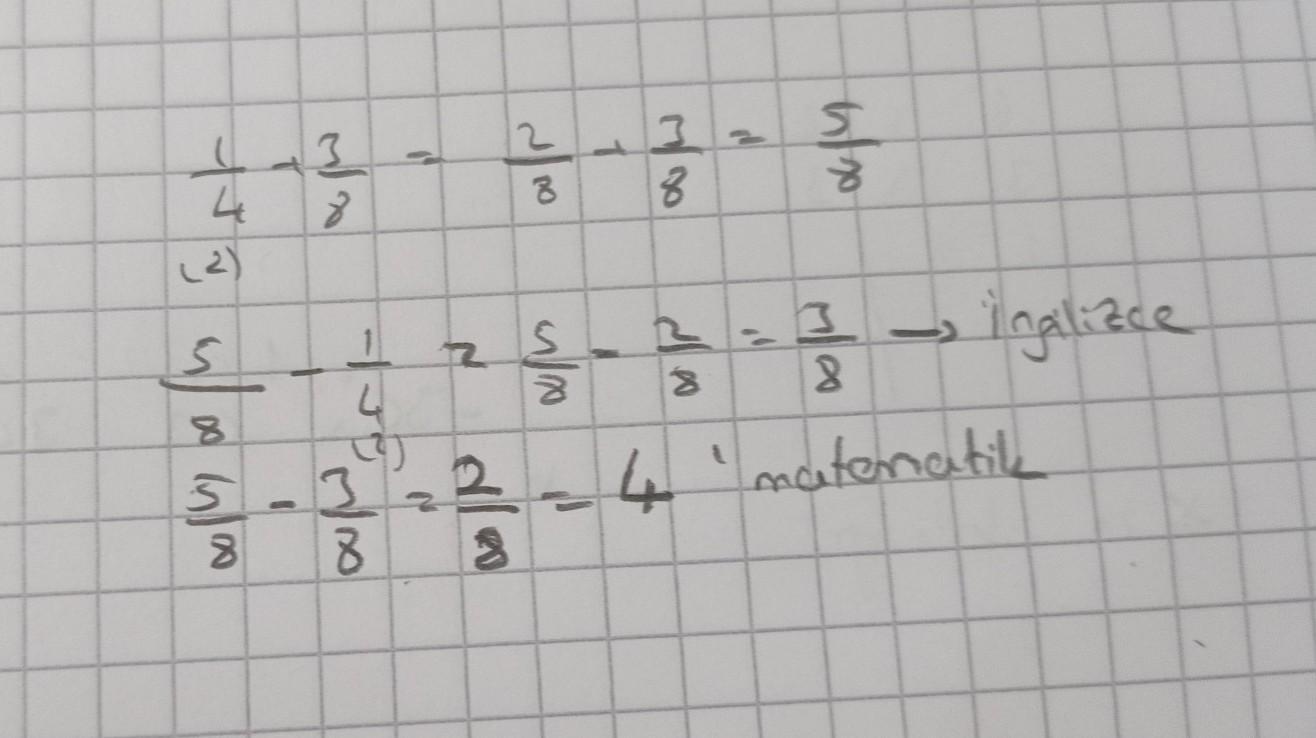 1/4 + 3/8 = 2/8 + 3/8 = 5/8
(2)
5/8 - 1/4 = 5/8 - 2/8 = 3/8 → ingilizce
(2)
5/8 - 3/8 = 2/8 = 4 ' matematik